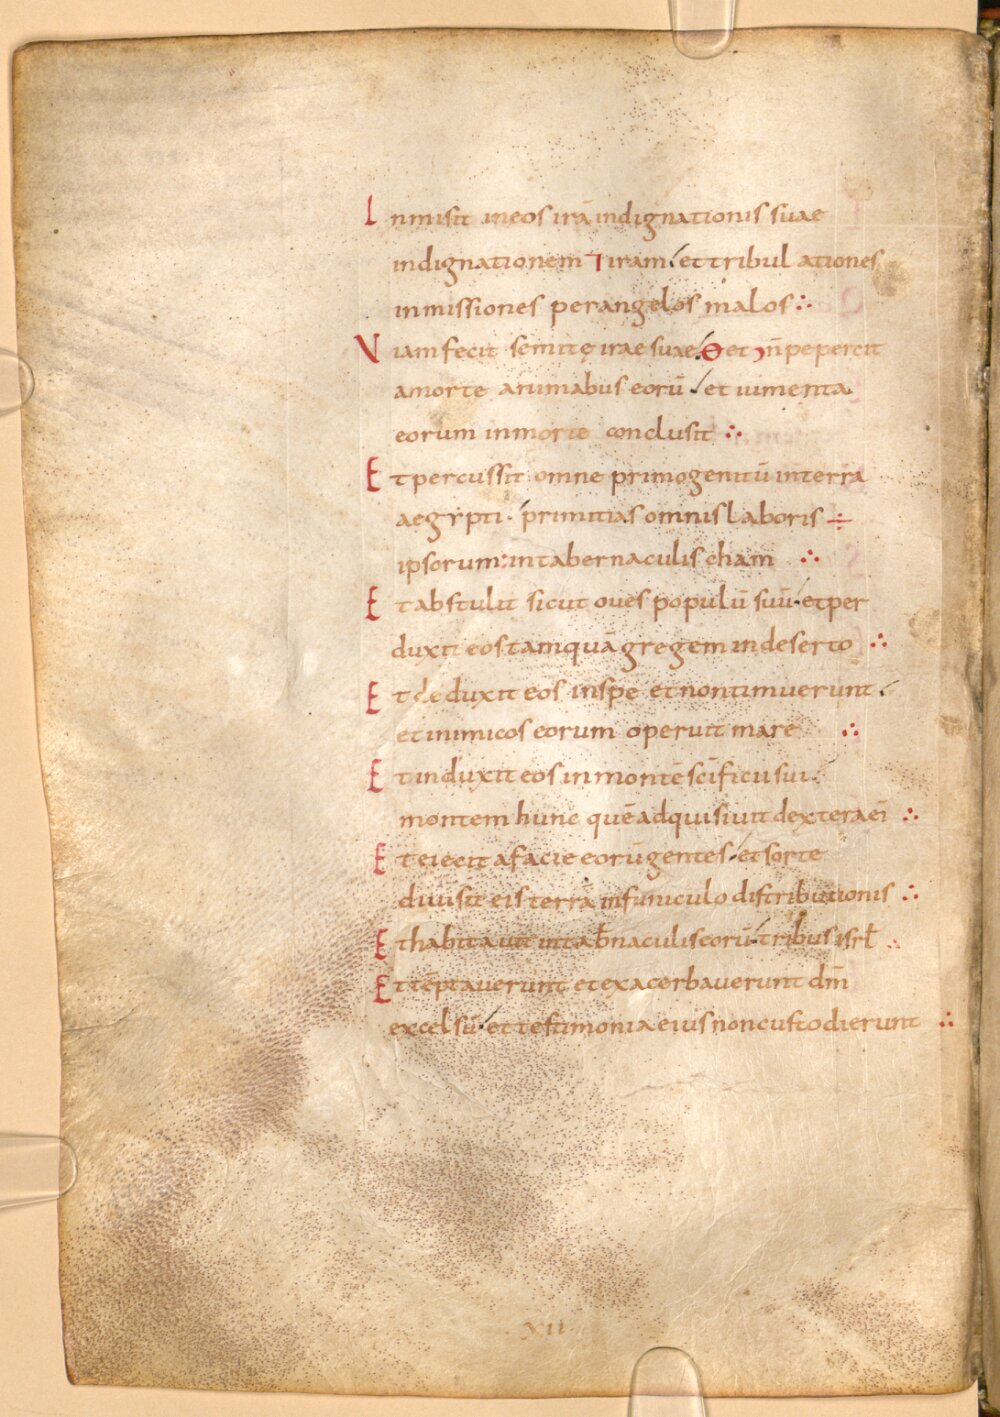 Inmisit ineos irā indignationis suae
indignationem ⁊ iram. et tribulationes
inmissiones perangelos malos∴
Viam fecit semitę irae suae. et n̄ pepercit
amorte animabus eorū. et iumenta
eorum inmorte conclusit ∴
Et percussit omne primogenitū interra
aegypti. primitias omnis laboris ÷
ipsorum: intabernaculis cham ∴
Et abstulit sicut oues populū suū. et per
duxit eos tamquā gregem indeserto ∴
Et deduxit eos inspe et nontimuerunt.
et inimicos eorum operuit mare ∴
Et induxit eos inmontē scīficiisui.
montem hunc quē adquisiuit dextera ei ∴
Et eiecit afacie eorū gentes. et sorte
diuisit eis terrā infuniculo distributionis ∴
Et habitauit intab̄naculis eorū. tribus isrł ∴
Et tēptauerunt et exacerbauerunt dm̄
excelsū. et testimonia eius noncustodierunt ∴
XII